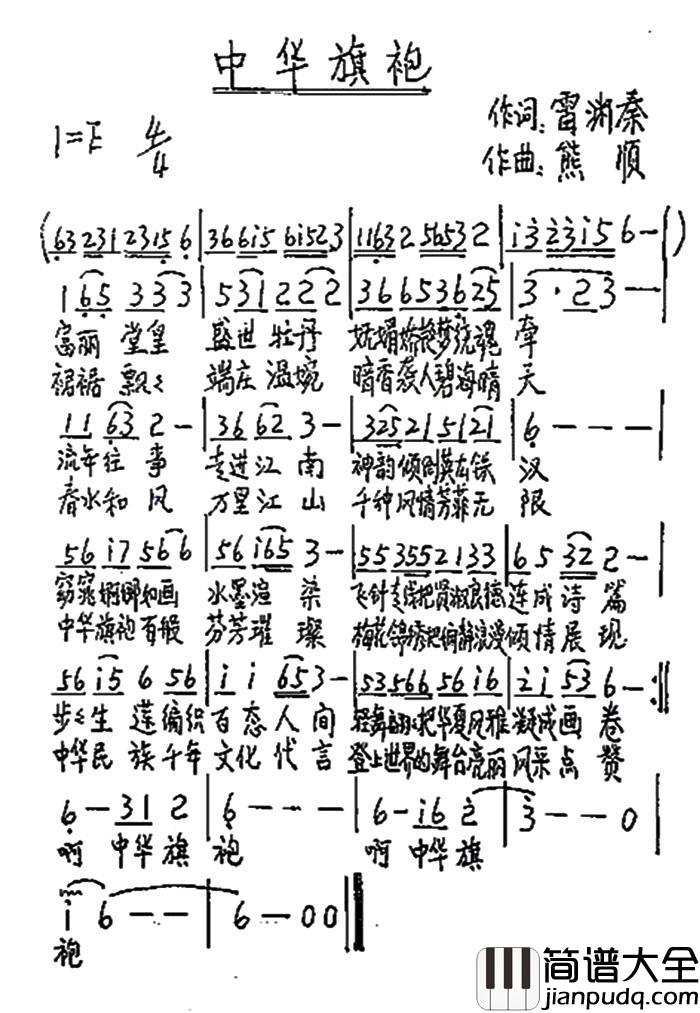 中华旗袍
作词:雷湘秦
1=F 4/4
作曲:熊顺
(63 231 2315 6 | 36 6i5 6i52 3 | 1163 2 5653 2 | i3 23i5 6 - )
1 65 3 33 3 | 5 31 2 2 2 | 36 65 36 25 | 3 · 2 3 -
富丽 堂皇 盛世 牡丹 妩媚娇艳梦绕魂 牵
裙裾 飘飘 端庄 温婉 暗香袭人碧海晴 天
11 63 2 - | 36 62 3 - | 325 21 51 21 | 6 - - -
流年往 事 走进江 南 神韵倾倒
春水和 风 万里江 山 千种风情芳菲无 限
56 i7 56 6 | 56 i65 3 - | 55 355 21 33 | 6 5 32 2 -
窈窕婀娜如画 水墨渲 染 飞针走线把贤淑良德连成诗篇
中华旗袍百般 芬芳璀 璨 梅花锦绣把恬静浪漫倾情展现
56 i5 6 56 | i i 65 3 - | 53 566 56 i6 | 2 i 53 6 - :||
步步生 莲编织百态人间 轻舞 把华夏风雅凝成画 卷
中华民 族千年文化代言 登上世界的舞台亮丽风采点 赞
6 - 31 2 | 6 - - - | 6 - i6 2 | 3 - - 0 |
啊 中华旗 袍 啊 中华旗
i 6 - - | 6 - 0 0 ||
袍
简谱大全
jianpudq.com